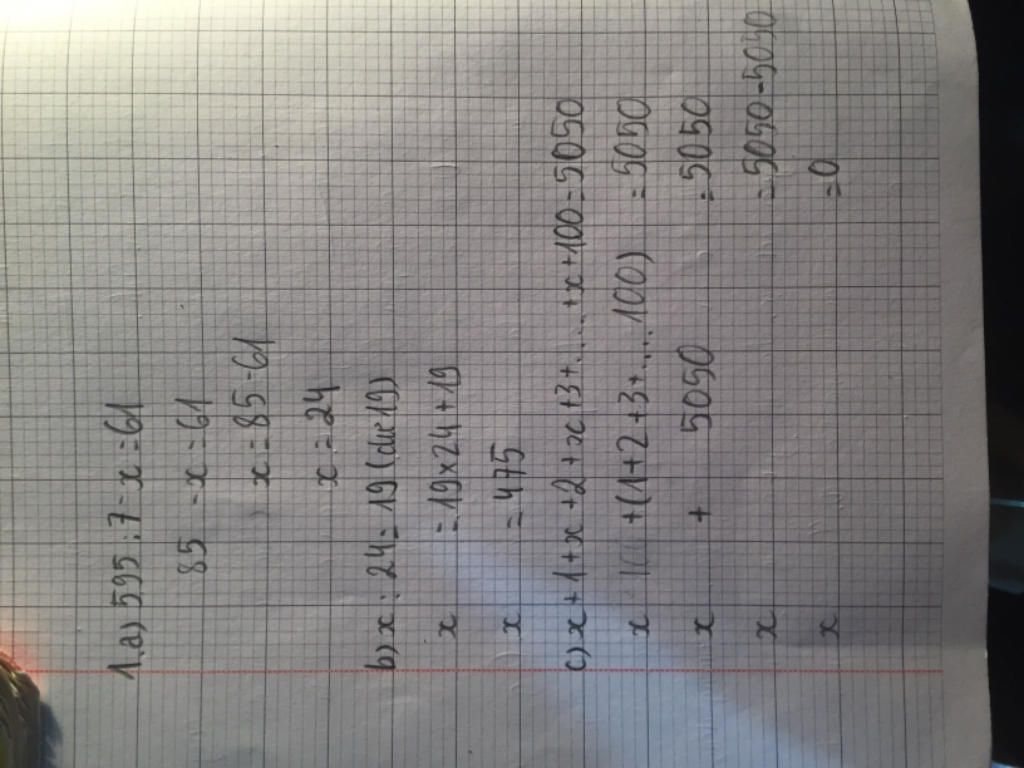 1.a) 595 : 7 - x = 61
85 - x = 61
x = 85 - 61
x = 24
b) x : 24 = 19 (dư 19)
x = 19 x 24 + 19
x = 475
c) x + 1 + x + 2 + x + 3 + ..... + x + 100 = 5050
x + (1 + 2 + 3 + .... 100) = 5050
x + 5050 = 5050
x = 5050 - 5050
x = 0